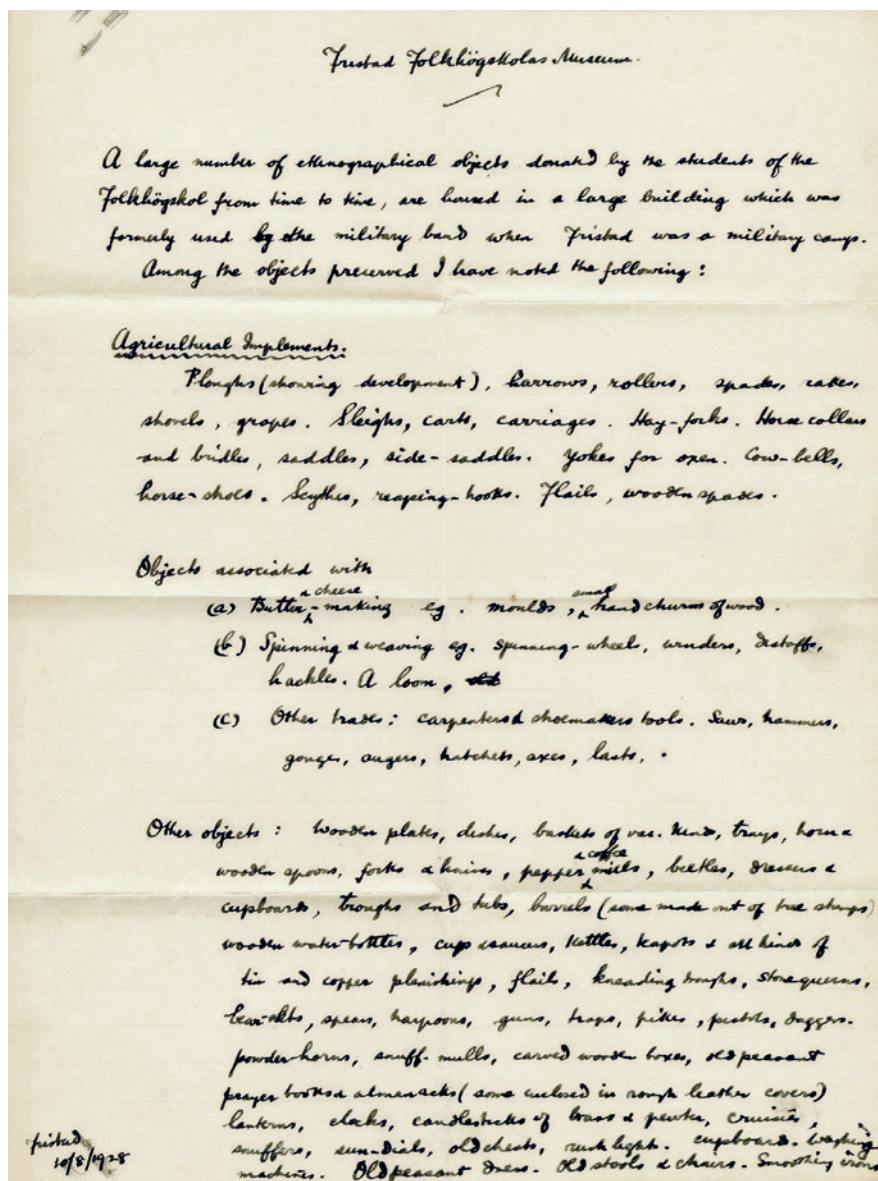 Fristad Folkhögskolas Museum.
A large number of ethnographical objects donated by the students of the
Folkhögskol from time to time, are housed in a large building which was
formerly used by the military band when Fristad was a military camp.
Among the objects preserved I have noted the following:
Agricultural Implements.
Ploughs (showing development), harrows, rollers, spades, rakes,
shovels, grapes. Sleighs, carts, carriages. Hay-forks. Horse collars
and bridles, saddles, side-saddles. Yokes for oxen. Cow-bells,
horse-shoes. Scythes, reaping-hooks. Flails, wooden spades.
Objects associated with
(a) Butter & cheese-making eg. moulds, small hand churns of wood.
(b) Spinning & weaving eg. spinning-wheels, winders, distaffs,
hackles. A loom,
(c) Other trades: carpenters & shoemakers tools. Saws, hammers,
gouges, augers, hatchets, axes, lasts, .
Other objects: Wooden plates, dishes, baskets of var. kinds, trays, horn &
wooden spoons, forks & knives, pepper & coffee mills, beetles, dressers &
cupboards, troughs and tubs, barrels (some made out of tree stumps)
wooden water-bottles, cups & saucers, kettles, teapots & all kinds of
tin and copper plenishings, flails, kneading troughs, stone querns,
spears, harpoons, guns, traps, pikes, pistols, daggers.
powder-horns, snuff-mulls, carved wooden boxes, old peasant
prayer books & almanacks (some enclosed in rough leather covers)
lanterns, clocks, candlesticks of brass & pewter, cruisies,
snuffers, sun-dials, old chests, rush light. cupboard. Washing
machines. Old peasant dress. Old stools & chairs. Smoothing irons
Fristad
10/8/1928